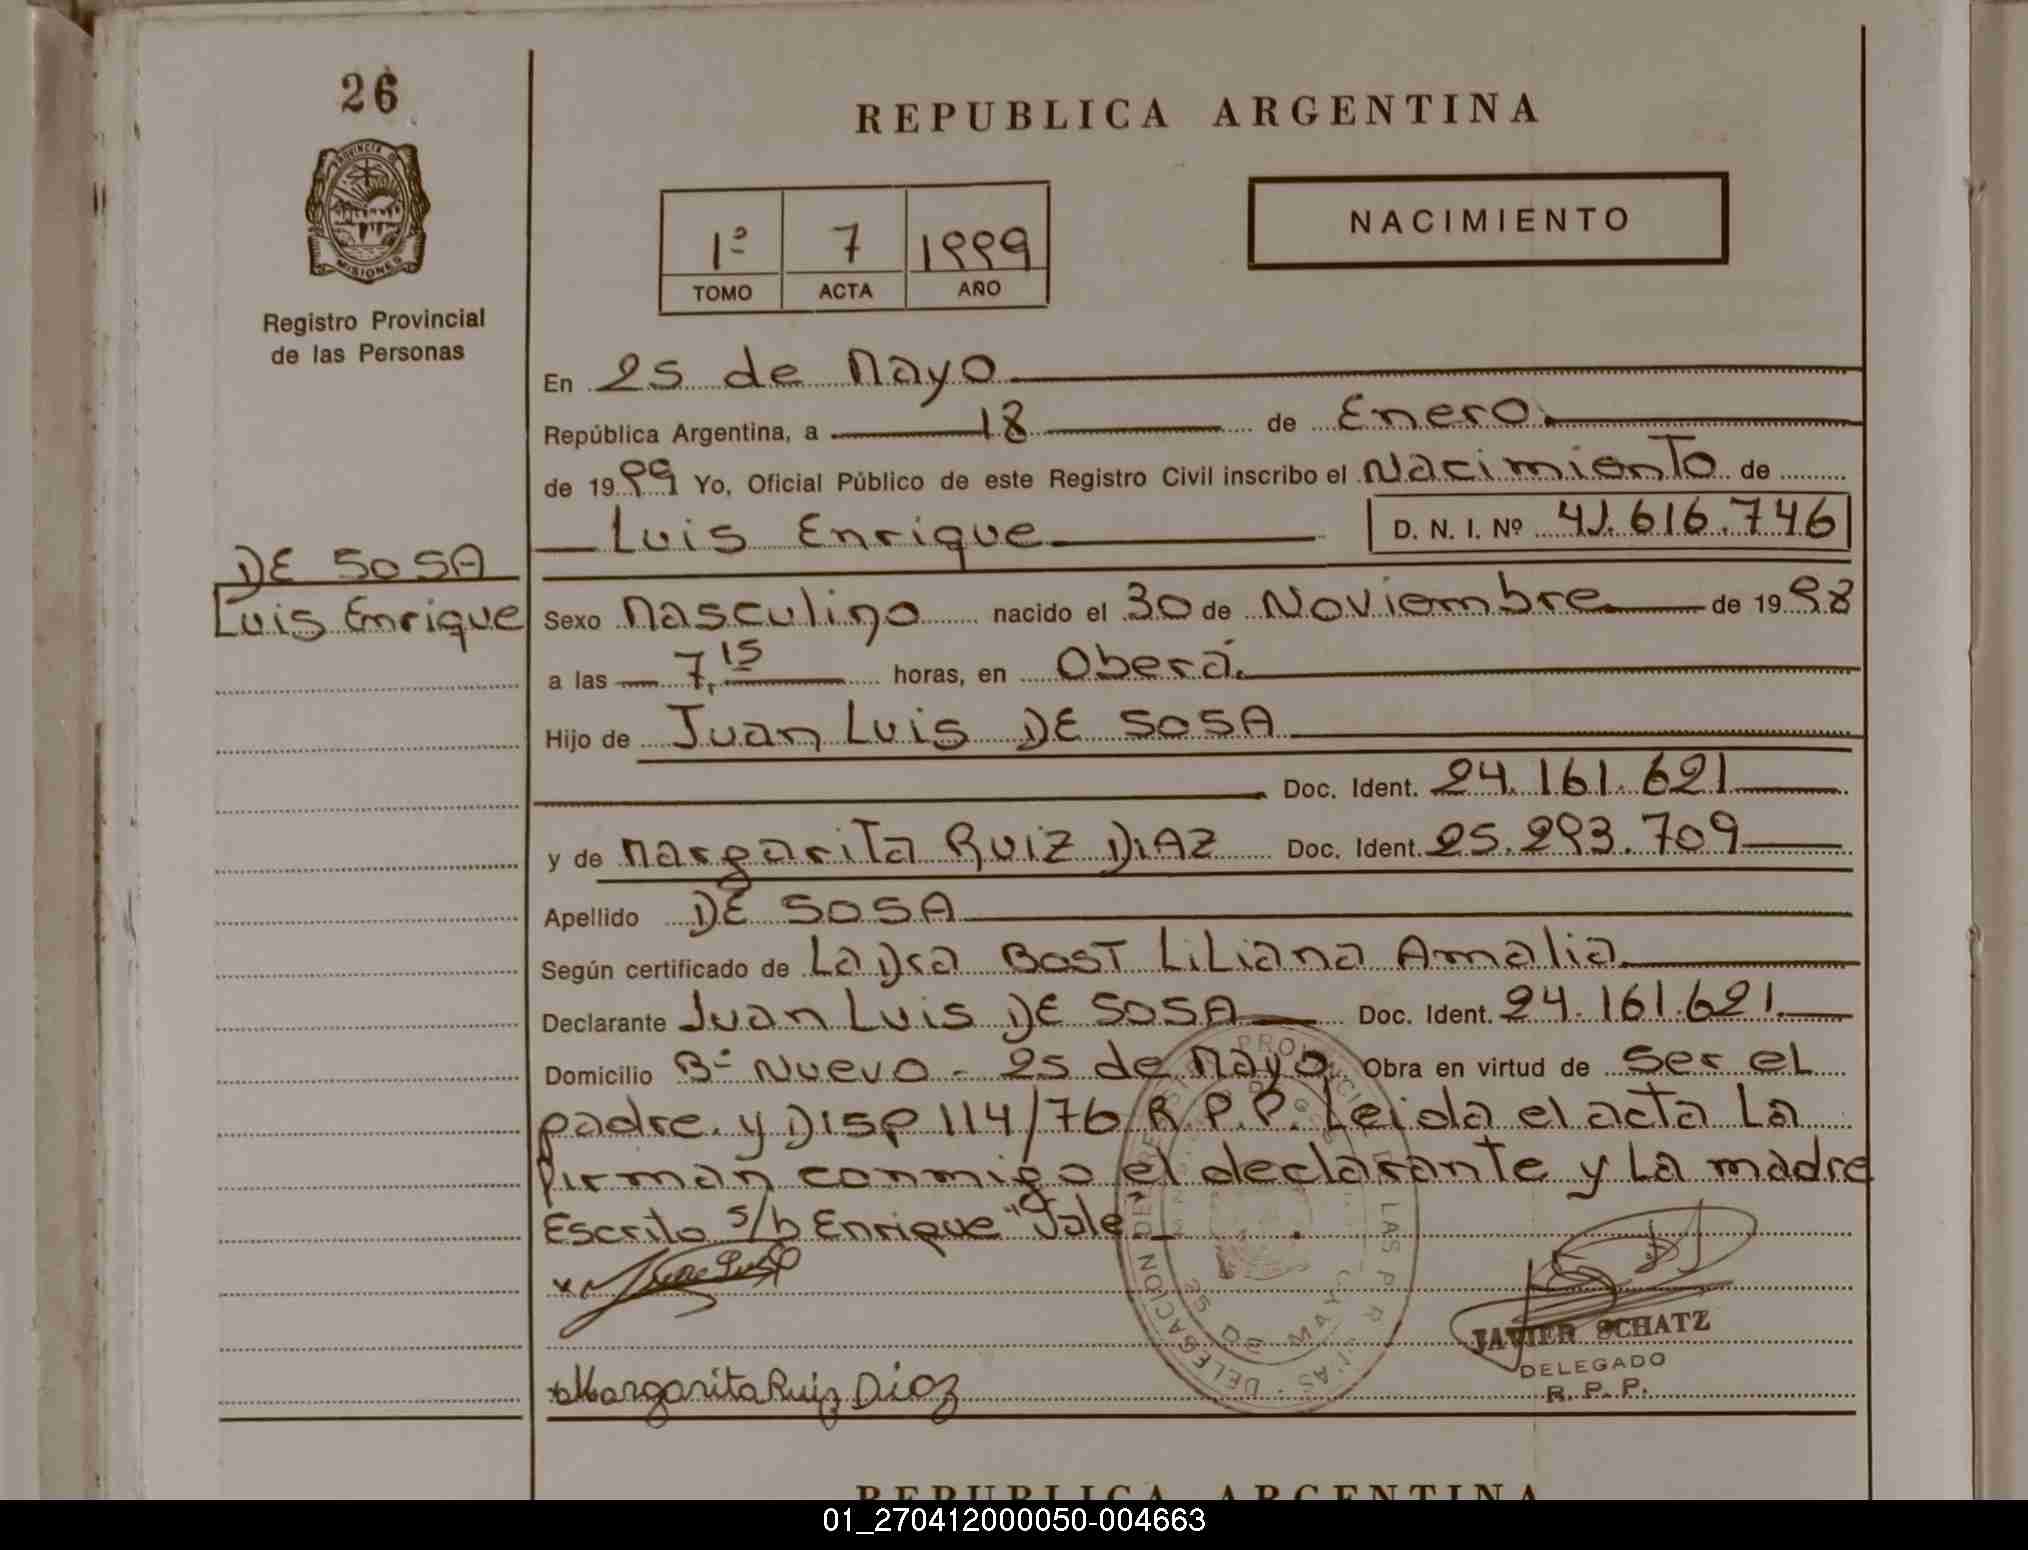 26
REPUBLICA ARGENTINA
PROVINCIA DE
MISIONES
NACIMIENTO
1º 7 1999
TOMO ACTA AÑO
Registro Provincial
de las Personas
En 25 de Mayo
República Argentina, a 18 de Enero.
de 1999 Yo, Oficial Público de este Registro Civil inscribo el Nacimiento de
Luis Enrique D. N. I. Nº 41.616.746
DE SOSA
Luis Enrique
Sexo Masculino nacido el 30 de Noviembre de 1998
a las 7,15 horas, en Oberá.
Hijo de Juan Luis DE SOSA
Doc. Ident. 24.161.621
y de Margarita RUIZ DIAZ Doc. Ident. 25.293.709
Apellido DE SOSA
Según certificado de La Dra BOST LiLiana Amalia.
Declarante Juan Luis DE SOSA Doc. Ident. 24.161.621.
Domicilio Bº Nuevo - 25 de Mayo. Obra en virtud de ser el
padre. y DISP 114/76 R.P.P. Leida el acta La
firman conmigo el declarante y La madre
Escrito s/b Enrique "Vale"
Margarita Ruiz Diaz
DELEGACIÓN 25 DE MAYO
JAVIER SCHATZ
DELEGADO
R. P. P.
REPUBLICA ARGENTINA
01_270412000050-004663